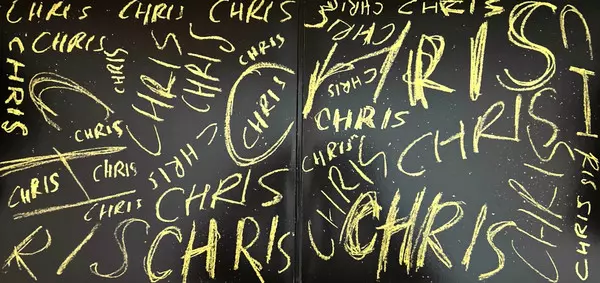 CHRIS CHRIS CHRIS
CHRIS
CHRIS
CHRIS
CHRIS
CHRIS
CHRIS
CHRIS
CHRIS
CHRIS
CHRIS
CHRIS
CHRIS
CHRIS
CHRIS
RIS
CHRIS
CHRIS
CHRIS
CHRIS
HRIS
CHRIS
CHRIS
CHRIS
CHRIS
CHRIS
CHRIS
CHRIS
RIS
CHRIS